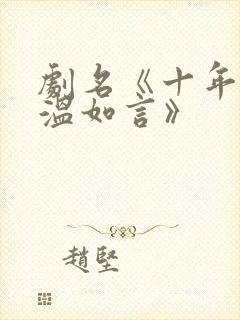 劇名《十年
溫如言》
趙堅